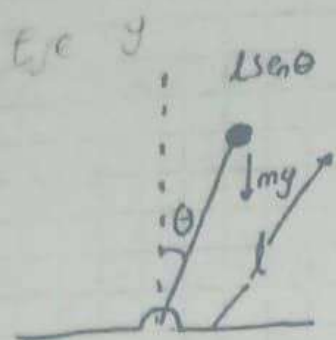 Eje y
lsenθ
mg
θ
l